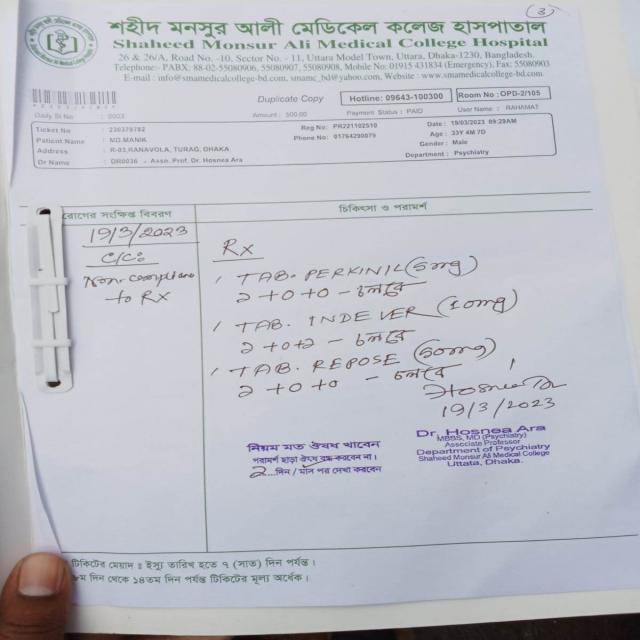 (3)
শহীদ মনসুর আলী মেডিকেল কলেজ হাসপাতাল
Shaheed Monsur Ali Medical College Hospital
26 & 26/A, Road No. -10, Sector No. - 11, Uttara Model Town, Uttara, Dhaka-1230, Bangladesh.
Telephone- PABX: 88-02-55080906, 55080907, 55080908, Mobile No: 01915 431834 (Emergency), Fax: 55080903
E-mail : info@smamedicalcollege-bd.com, smamc_bd@yahoo.com, Website : www.smamedicalcollege-bd.com
Duplicate Copy Hotline: 09643-100300 Room No : OPD-2/105
Daily Sl No : 0003 Amount : 500.00 Payment Status : PAID User Name : RAHAMAT
Ticket No : 230379782 Reg No: PR221102510 Date : 19/03/2023 09:29AM
Patient Name : MD.MANIK Phone No: 01764290079 Age : 33Y 4M 7D
Address : R-03,RANAVOLA, TURAG, DHAKA Gender : Male
Dr Name : DR0036 - Asso. Prof. Dr. Hosnea Ara Department : Psychiatry
রোগের সংক্ষিপ্ত বিবরণ চিকিৎসা ও পরামর্শ
19/3/2023
C/C:
Non-compliance
to RX
Rx
TAB. PERKINIL (5mg)
২+০+০ - চলবে
TAB. INDEVER (10mg)
২+০+২ - চলবে
TAB. REPOSE (50mg)
২+০+০ - চলবে
Hosnea
19/3/2023
নিয়ম মত ঔষধ খাবেন
পরামর্শ ছাড়া ঔষধ বন্ধ করবেন না।
২...দিন / মাস পর দেখা করবেন
Dr. Hosnea Ara
MBBS, MD (Psychiatry)
Associate Professor
Department of Psychiatry
Shaheed Monsur Ali Medical College
Uttata, Dhaka.
টিকিটের মেয়াদ ঃ ইস্যু তারিখ হতে ৭ (সাত) দিন পর্যন্ত।
৮ম দিন থেকে ১৪তম দিন পর্যন্ত টিকিটের মূল্য অর্ধেক।